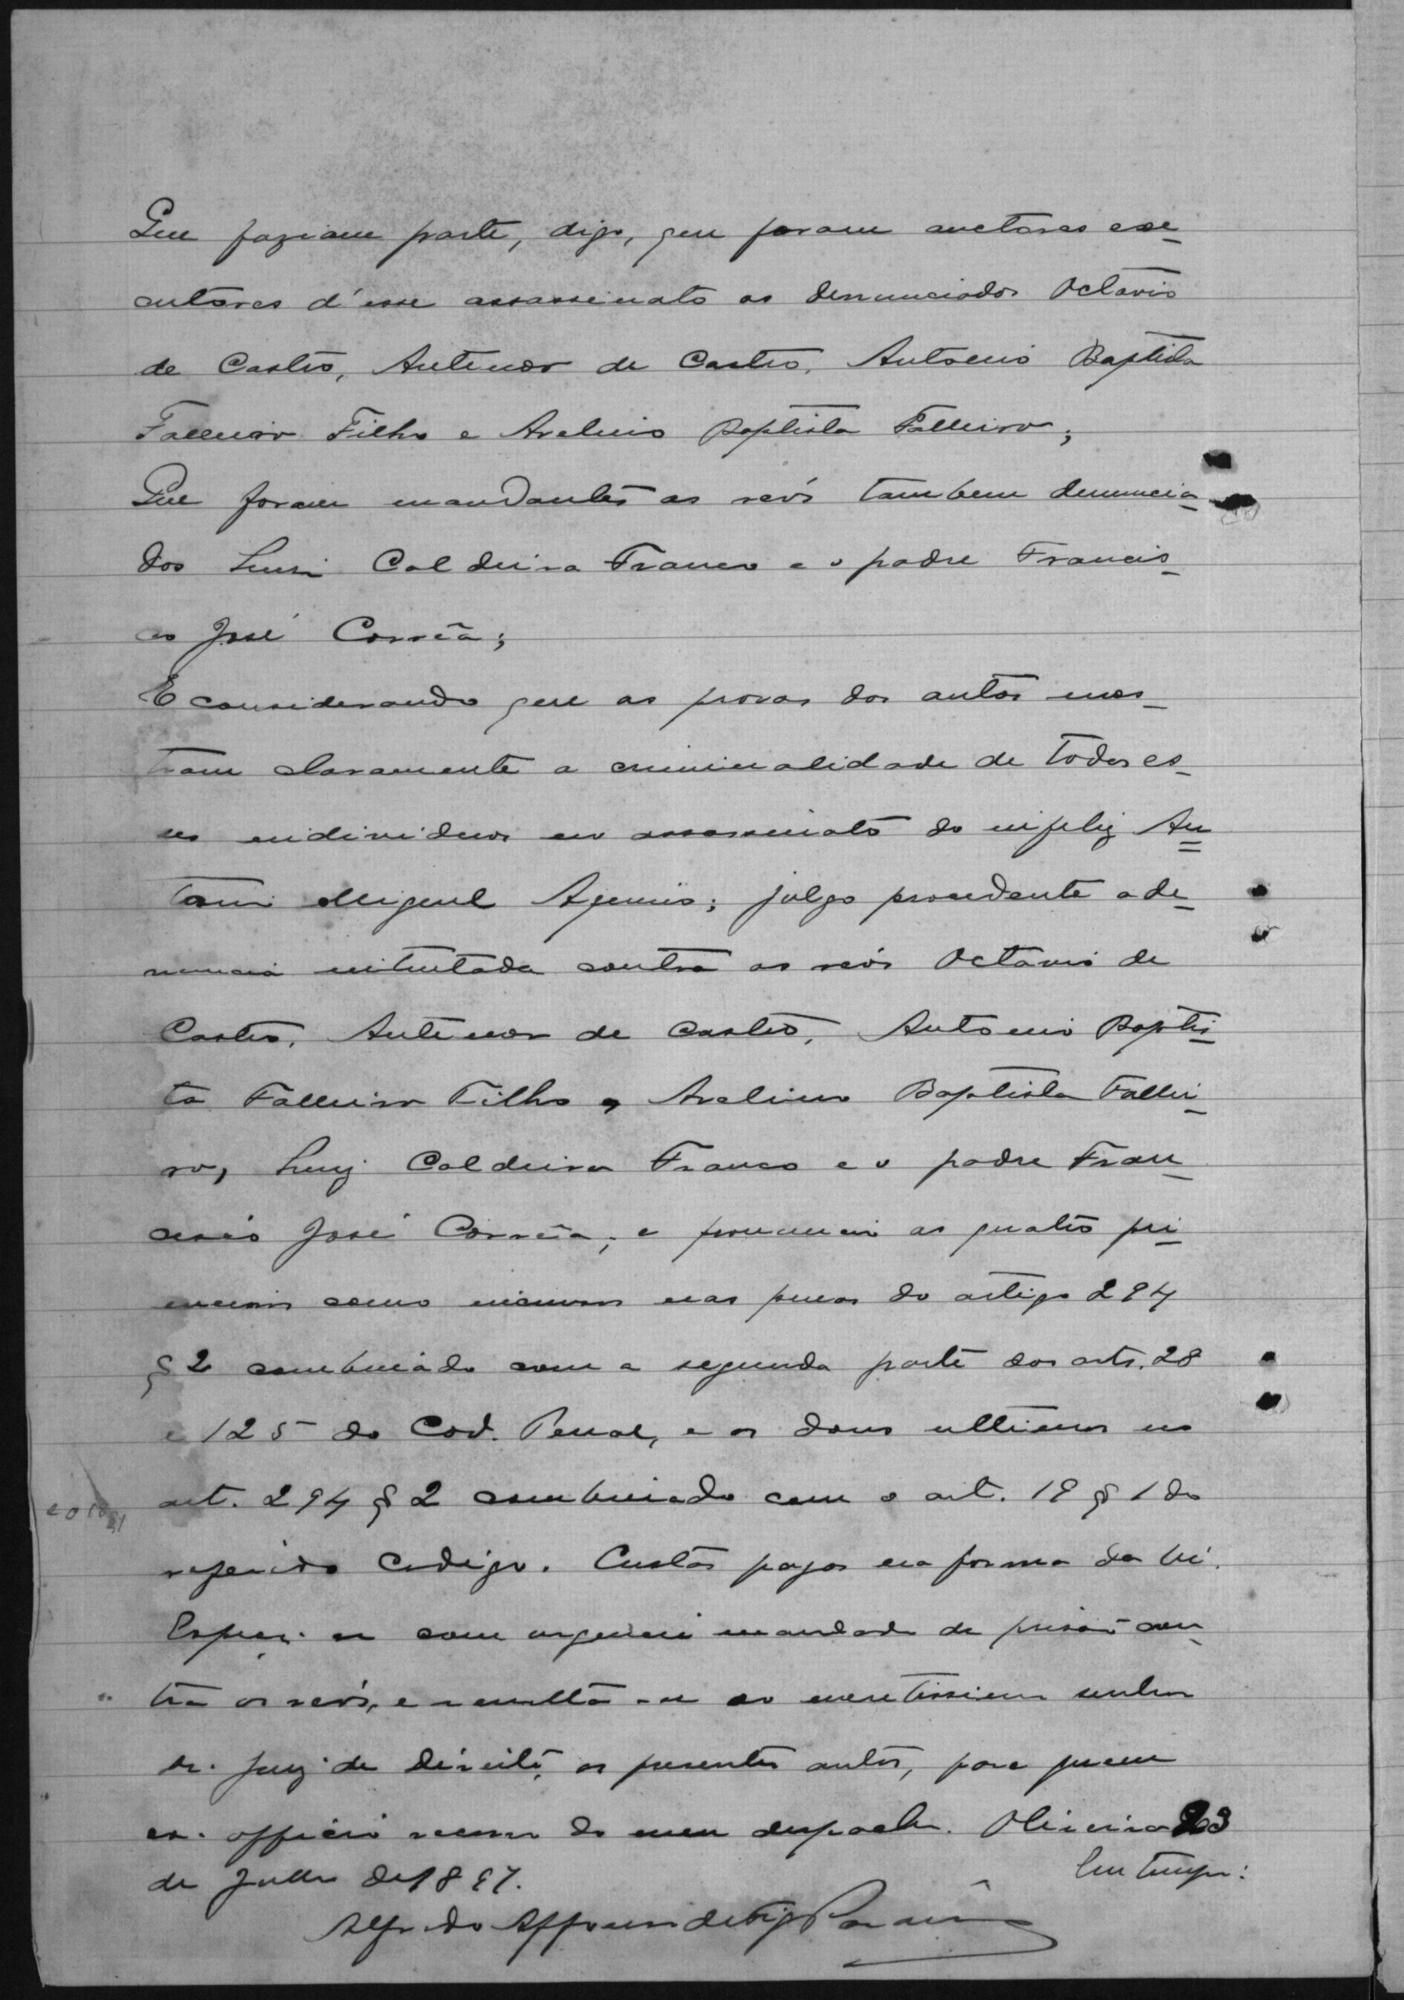 Que faziam parte, digo, que foram auctores exe-
cutores d'esse assassinato os denunciados Octavio
de Castro, Antenor de Castro, Antonio Baptista
Falleiro Filho e Avelino Baptista Falleiro;
Que foram mandantes os reós tambem denuncia-
dos Luiz Caldeira Franco e o padre Francis-
co José Corrêa;
E considerando que as provas dos autos mos-
tram claramente a criminalidade de todos es-
ses individuos no assassinato do infeliz An-
tonio Miguel; julgo procedente a de-
nuncia intentada contra os reós Octavio de
Castro, Antenor de Castro, Antonio Baptis-
ta Falleiro Filho, Avelino Baptista Fallei-
ro, Luiz Caldeira Franco e o padre Fran-
cisco José Corrêa; e pronuncio os quatro pri-
meiros como incursos nas penas do artigo 294
§ 2 combinado com a segunda parte dos arts. 28
e 125 do Cod. Penal, e os dous ultimos no
art. 294 § 2 combinado com o art. 18 § 1 do
referido Codigo. Custas pagas na forma da lei.
Expeça-se com urgencia mandado de prisão con-
tra os reós, e remetta-se ao meretissimo senhor
dr. Juiz de direito, os presentes autos, para quem
ex-officio recorro do meu despacho. Oliveira 23
de Julho de 1897.
Em tempo:
Alfredo Affonso